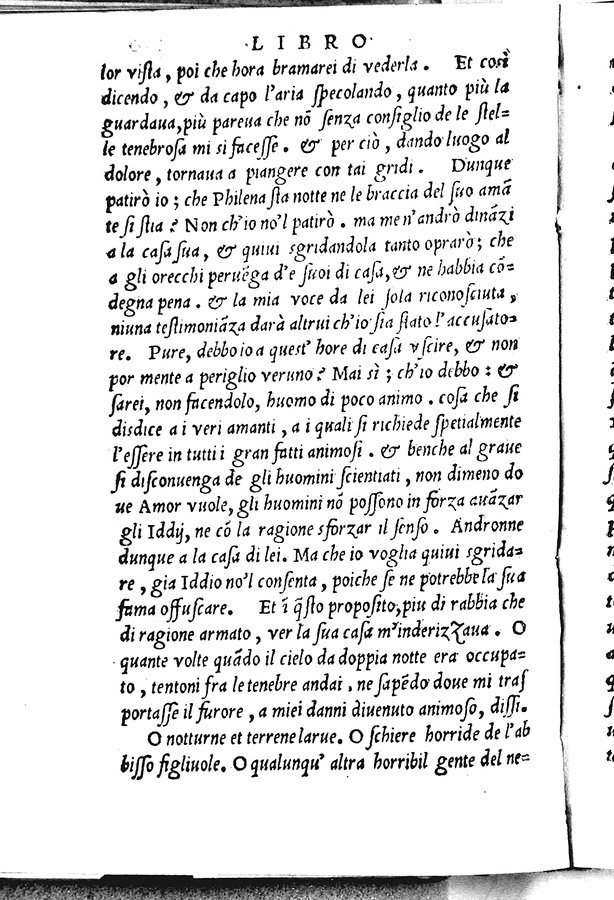 LIBRO
lor viſta, poi che hora bramarei di vederla. Et così
dicendo, & da capo l'aria ſpecolando, quanto più la
guardaua, più pareua che nõ ſenza conſiglio de le ſtel-
le tenebroſa mi si faceſſe. & per ciò, dando luogo al
dolore, tornaua a piangere con tai gridi. Dunque
patirò io; che Philena ſta notte ne le braccia del ſuo amã
te ſi ſtia? Non ch'io no'l patirò. ma men'andrò dinãzi
a la caſa ſua, & quiui sgridandola tanto oprarò; che
a gli orecchi peruẽga d'e ſuoi di caſa, & ne habbia cõ=
degna pena. & la mia voce da lei ſola riconoſciuta,
niuna teſtimoniãza darà altrui ch'io ſia ſtato l'accuſato=
re. Pure, debbo io a queſt' hore di caſa vſcire, & non
por mente a periglio veruno? Mai sì; ch'io debbo: &
ſarei, non facendolo, huomo di poco animo. coſa che ſi
disdice a i veri amanti, a i quali ſi richiede ſpetialmente
l'eſſere in tutti i gran fatti animoſi. & benche al graue
ſi diſconuenga de gli huomini ſcientiati, non dimeno do
ue Amor vuole, gli huomini nõ poſſono in forza auãzar
gli Iddij, ne cõ la ragione sforzar il ſenſo. Andronne
dunque a la caſa di lei. Ma che io voglia quiui sgrida=
re, gia Iddio no'l conſenta, poiche ſe ne potrebbe la ſua
fama offuſcare. Et ĩ q̃ſto propoſito, piu di rabbia che
di ragione armato, ver la ſua caſa m'inderizzaua. O
quante volte quãdo il cielo da doppia notte era occupa=
to, tentoni fra le tenebre andai. ne ſapẽdo doue mi traſ
portaſſe il furore, a miei danni diuenuto animoſo, diſſi.
O notturne et terrene larue. O ſchiere horride de l'ab
biſſo figliuole. O qualunqu' altra horribil gente del ne=